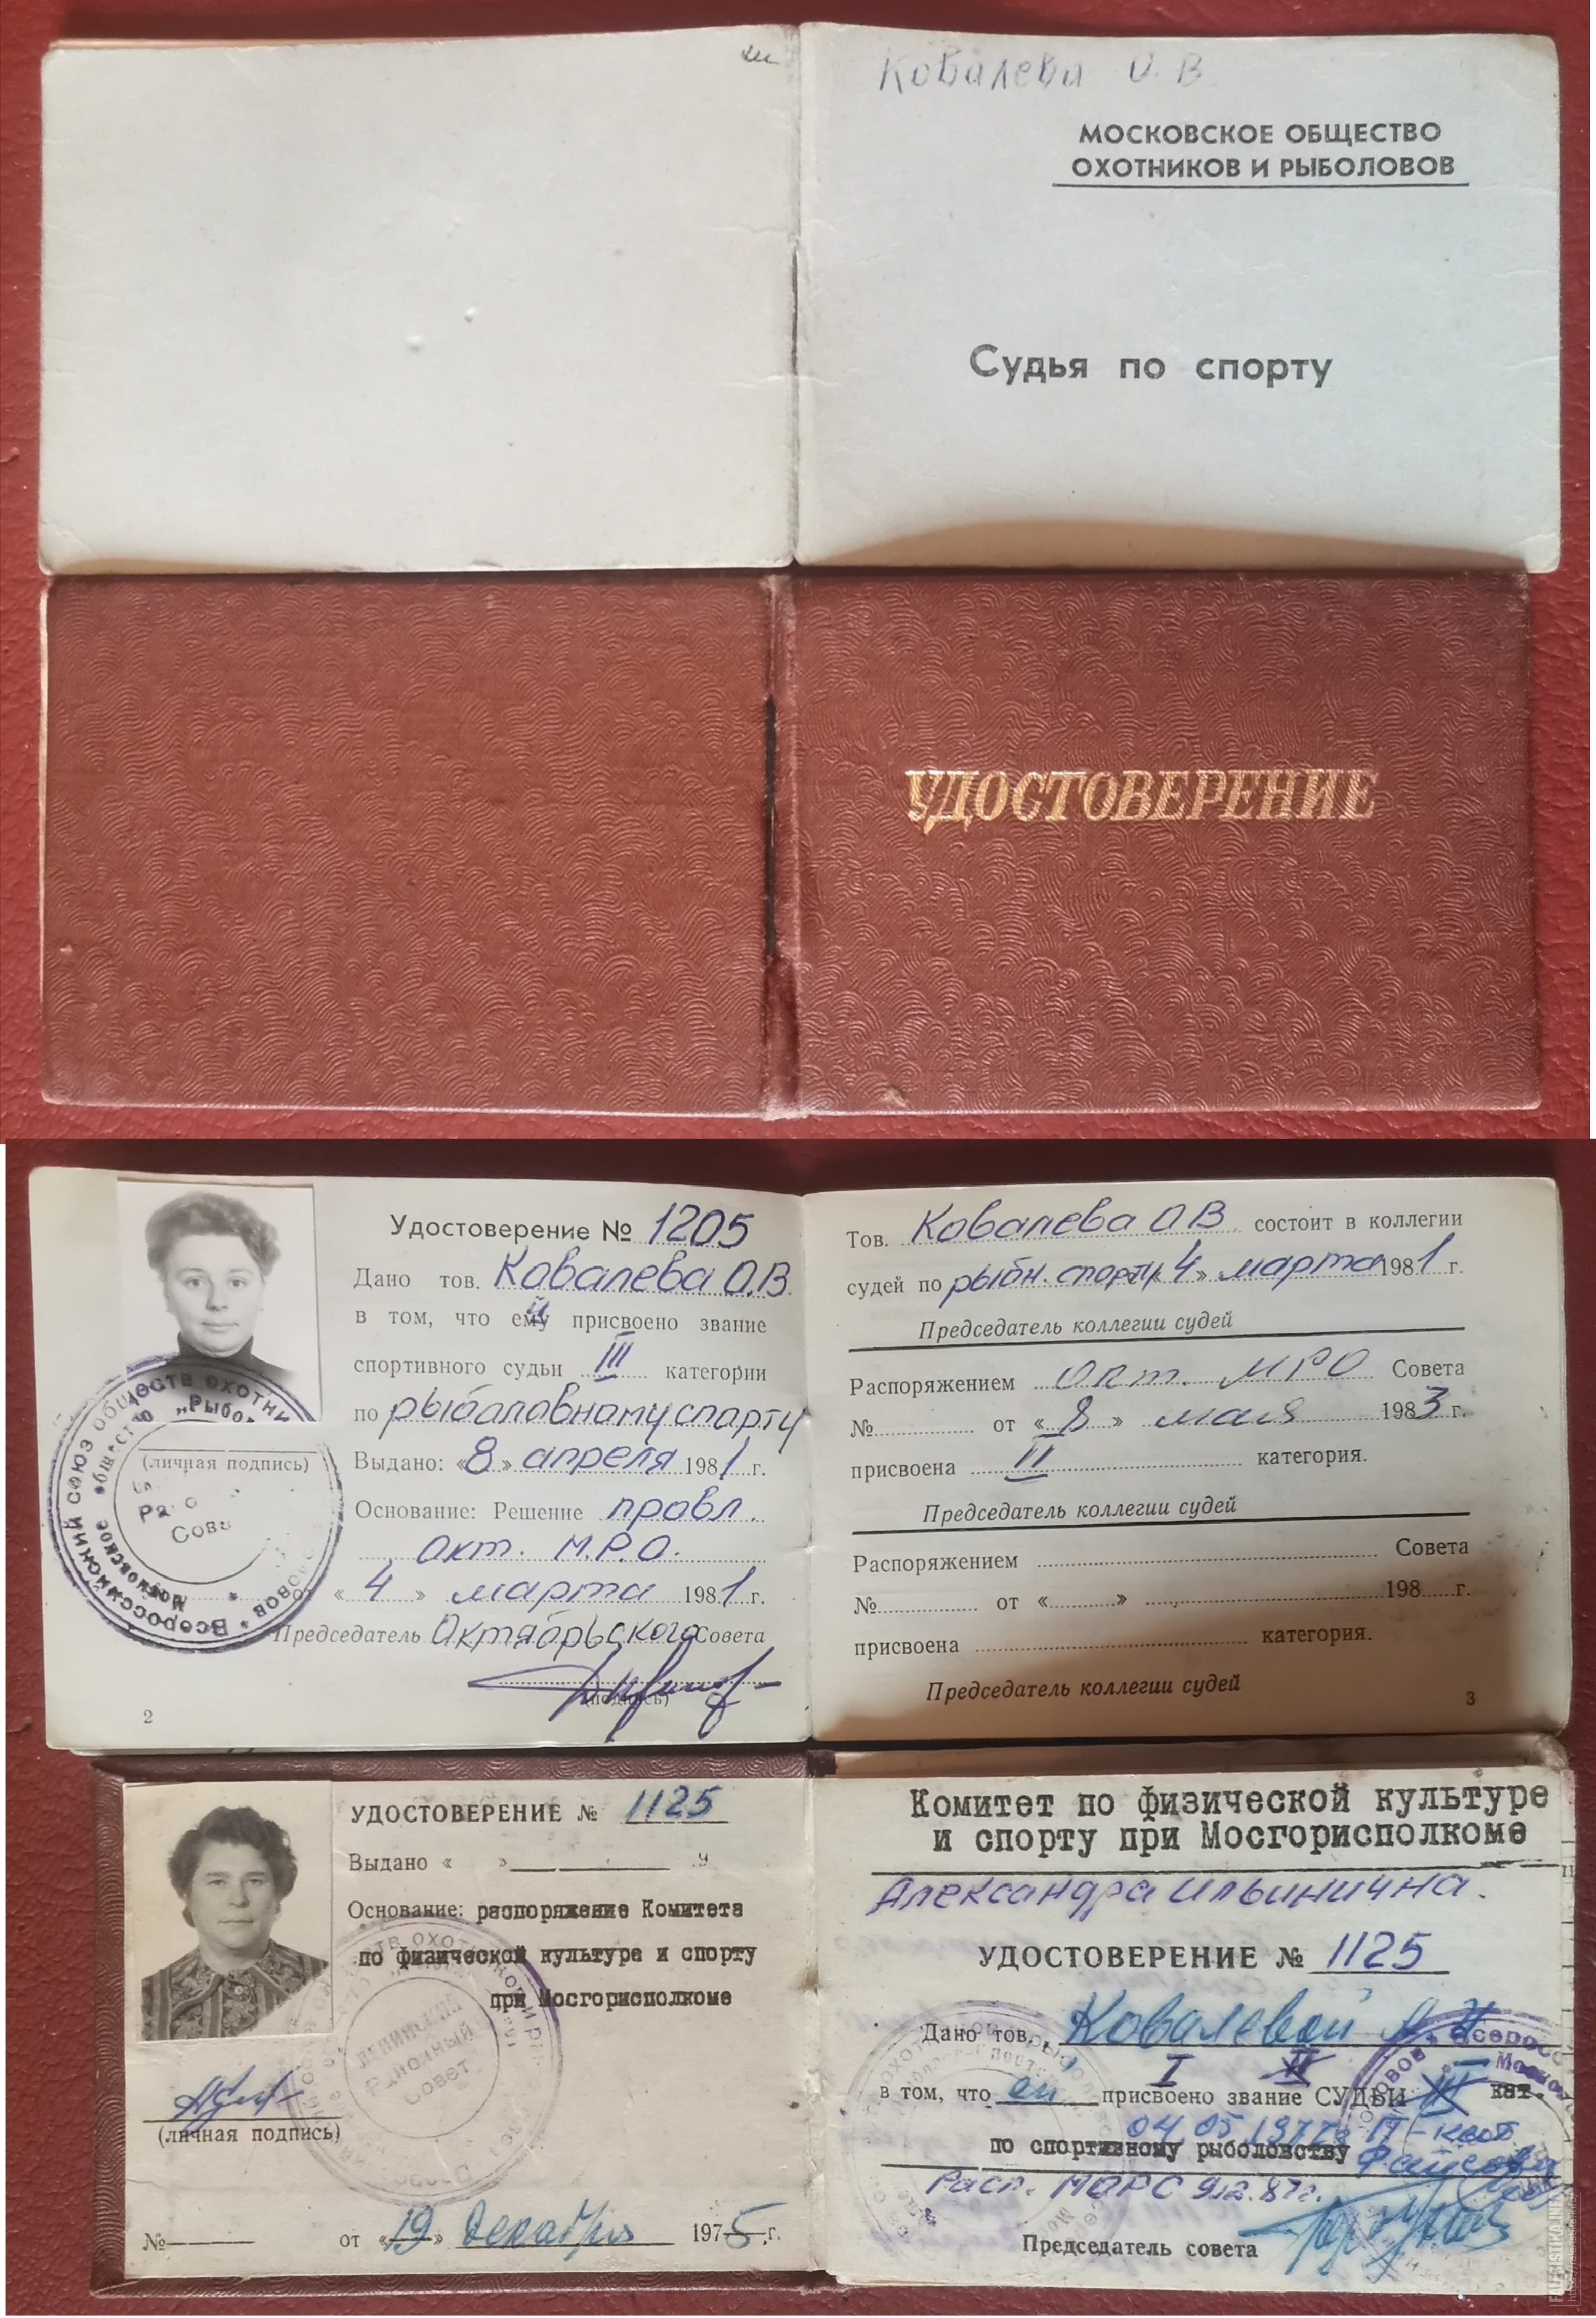 Ковалева О.В
МОСКОВСКОЕ ОБЩЕСТВО
ОХОТНИКОВ И РЫБОЛОВОВ
Судья по спорту
УДОСТОВЕРЕНИЕ
Удостоверение № 1205
Дано тов. Ковалева О.В.
в том, что ей присвоено звание
спортивного судьи III категории
по рыболовному спорту
(личная подпись)
Выдано: «8» апреля 1981 г.
Основание: Решение правл.
Окт. М.Р.О.
от «4» марта 1981 г.
Председатель Октябрьского Совета
(подпись)
2
Всероссийский союз обществ охотни ловов
Московское общество „Рыбо
Тов. Ковалева О В состоит в коллегии
судей по рыбн. спорту «4» марта 1981 г.
Председатель коллегии судей
Распоряжением Окт. МРО Совета
№ от «8» мая 1983 г.
присвоена II категория.
Председатель коллегии судей
Распоряжением Совета
№ от « » 198 г.
присвоена категория.
Председатель коллегии судей
3
УДОСТОВЕРЕНИЕ № 1125
Выдано « »
Основание: распоряжение Комитета
по физической культуре и спорту
при Мосгорисполкоме
Ленинский
Районный
Совет
(личная подпись)
№ от «19» декабря 1975 г.
Комитет по физической культуре
и спорту при Мосгорисполкоме
Александра Ильинична.
УДОСТОВЕРЕНИЕ № 1125
Дано тов. Ковалевой А И
I II
в том, что ей присвоено звание СУДЬИ III кат.
04.05.1977г II-кат
по спортивному рыболовству
Расп. МОРС 9.12.87г.
Председатель совета
FALERISTIKA.INFO